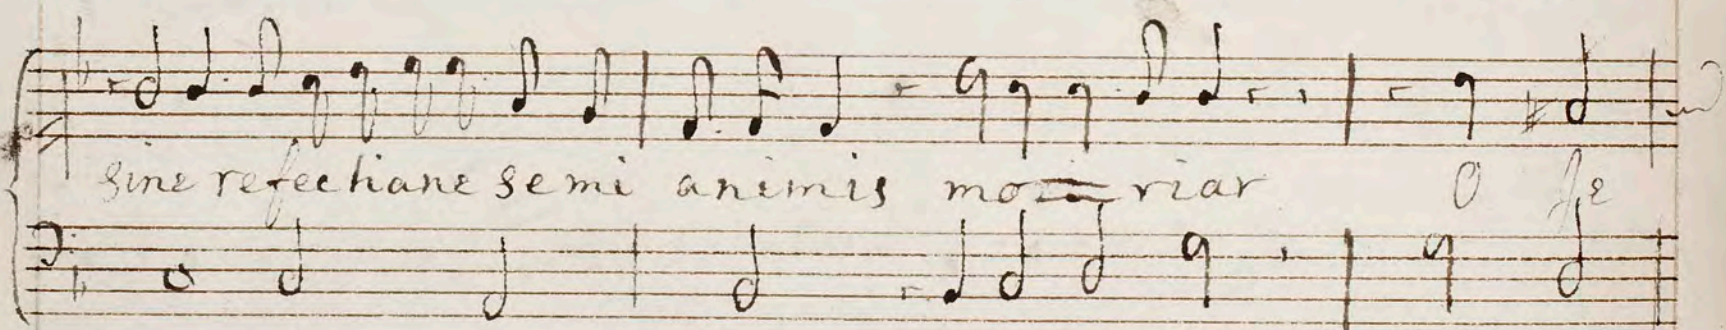 sine refectione semi animis mo= riar O Je